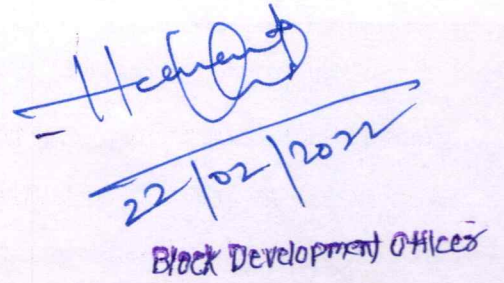 22/02/2022
Block Development Officer